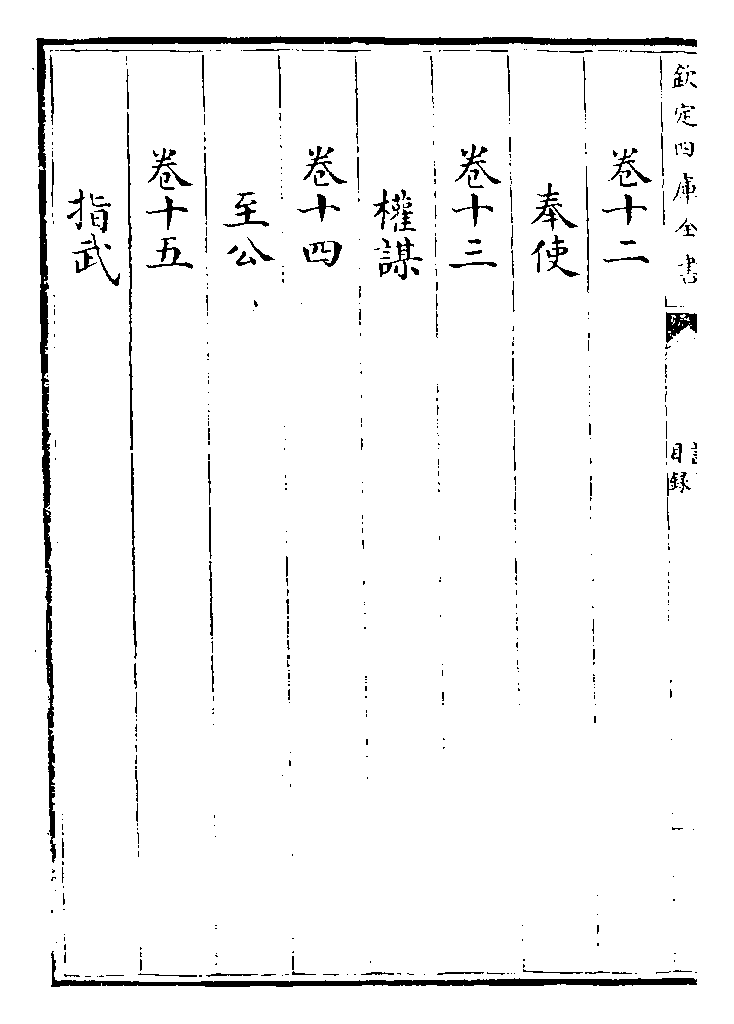 欽定四庫全書
目録
卷十二
奉使
卷十三
權謀
卷十四
至公
卷十五
指武